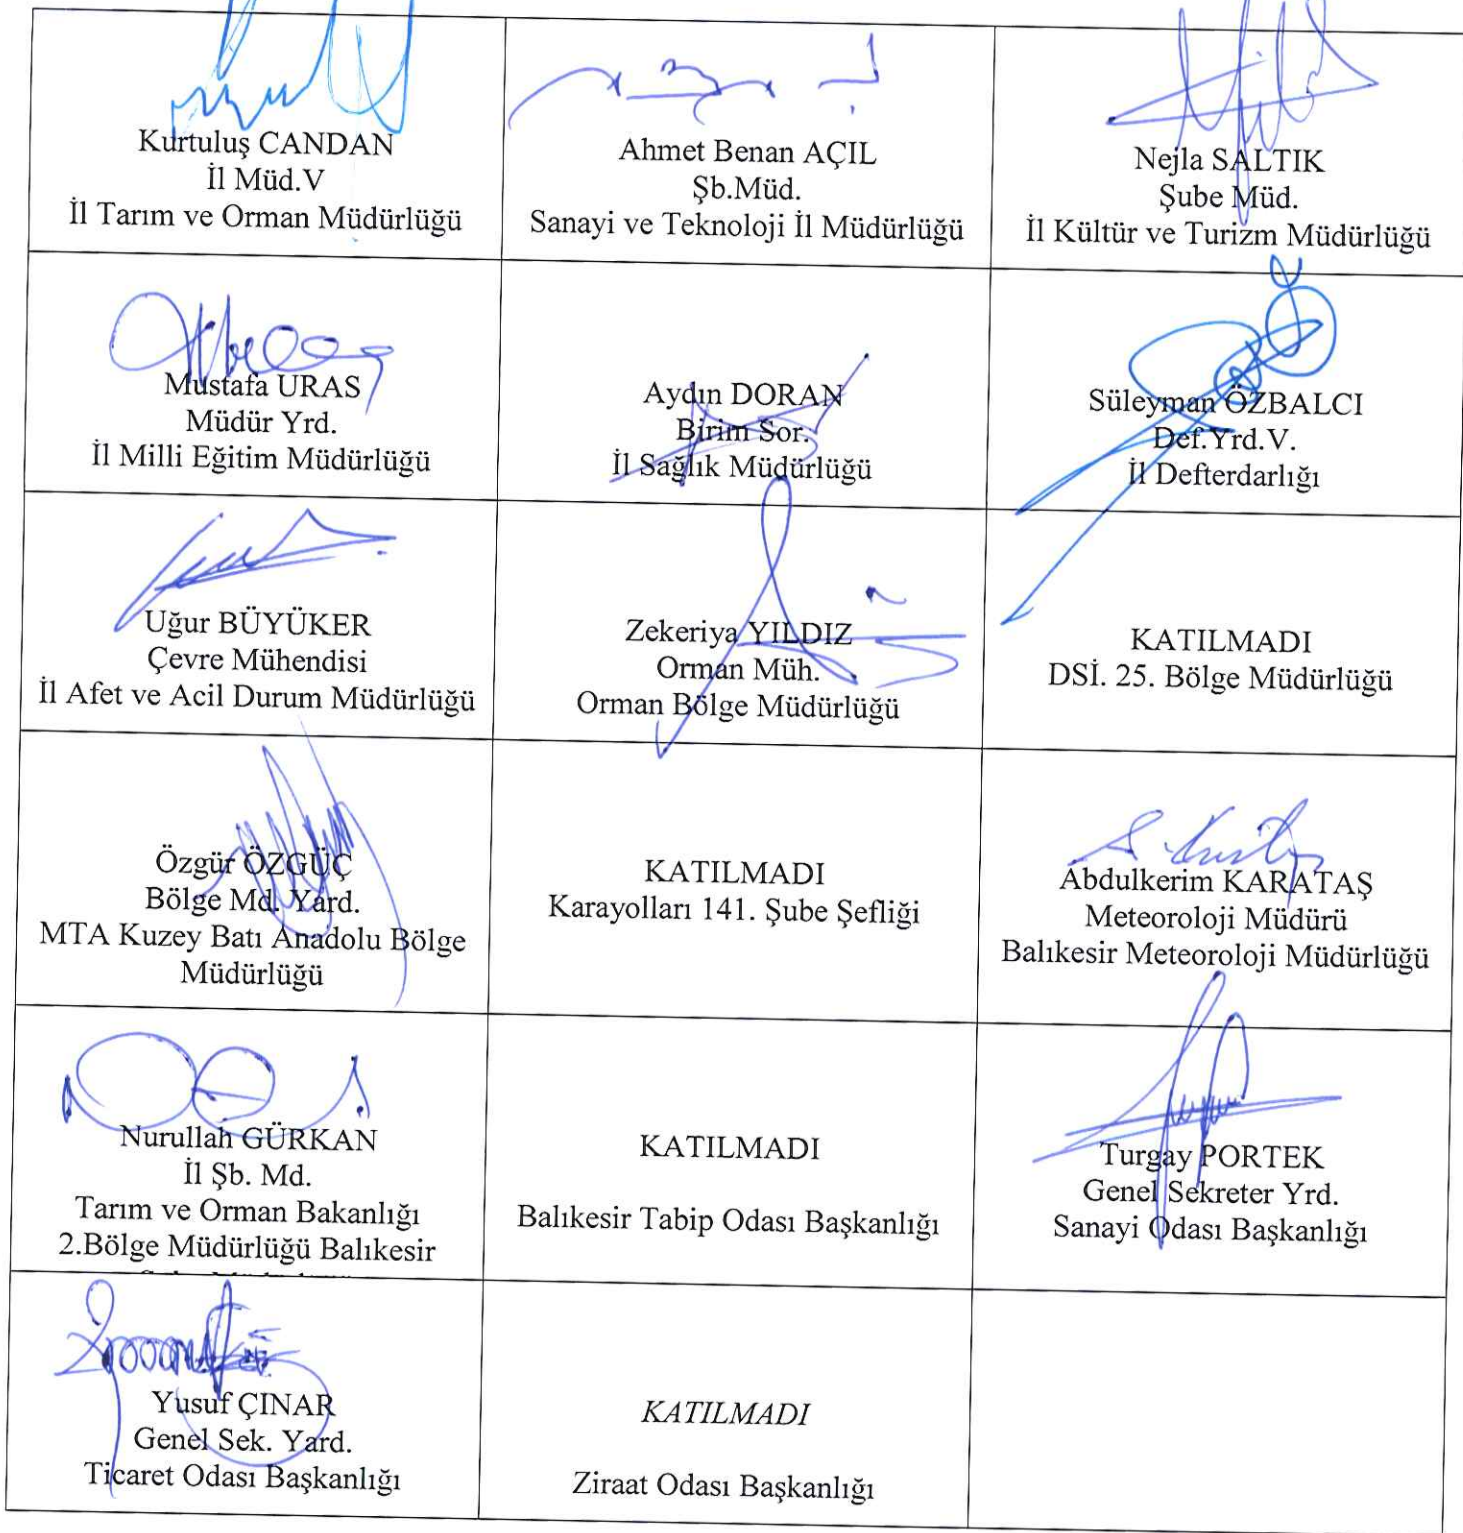 Kurtuluş CANDAN
İl Müd.V
İl Tarım ve Orman Müdürlüğü
Ahmet Benan AÇIL
Şb.Müd.
Sanayi ve Teknoloji İl Müdürlüğü
Nejla SALTIK
Şube Müd.
İl Kültür ve Turizm Müdürlüğü
Mustafa URAS
Müdür Yrd.
İl Milli Eğitim Müdürlüğü
Aydın DORAN
Birim Sor.
İl Sağlık Müdürlüğü
Süleyman ÖZBALCI
Def.Yrd.V.
İl Defterdarlığı
Uğur BÜYÜKER
Çevre Mühendisi
İl Afet ve Acil Durum Müdürlüğü
Zekeriya YILDIZ
Orman Müh.
Orman Bölge Müdürlüğü
KATILMADI
DSİ. 25. Bölge Müdürlüğü
Özgür ÖZGÜÇ
Bölge Md. Yard.
MTA Kuzey Batı Anadolu Bölge
Müdürlüğü
KATILMADI
Karayolları 141. Şube Şefliği
Abdulkerim KARATAŞ
Meteoroloji Müdürü
Balıkesir Meteoroloji Müdürlüğü
Nurullah GÜRKAN
İl Şb. Md.
Tarım ve Orman Bakanlığı
2.Bölge Müdürlüğü Balıkesir
KATILMADI
Balıkesir Tabip Odası Başkanlığı
Turgay PORTEK
Genel Sekreter Yrd.
Sanayi Odası Başkanlığı
Yusuf ÇINAR
Genel Sek. Yard.
Ticaret Odası Başkanlığı
KATILMADI
Ziraat Odası Başkanlığı